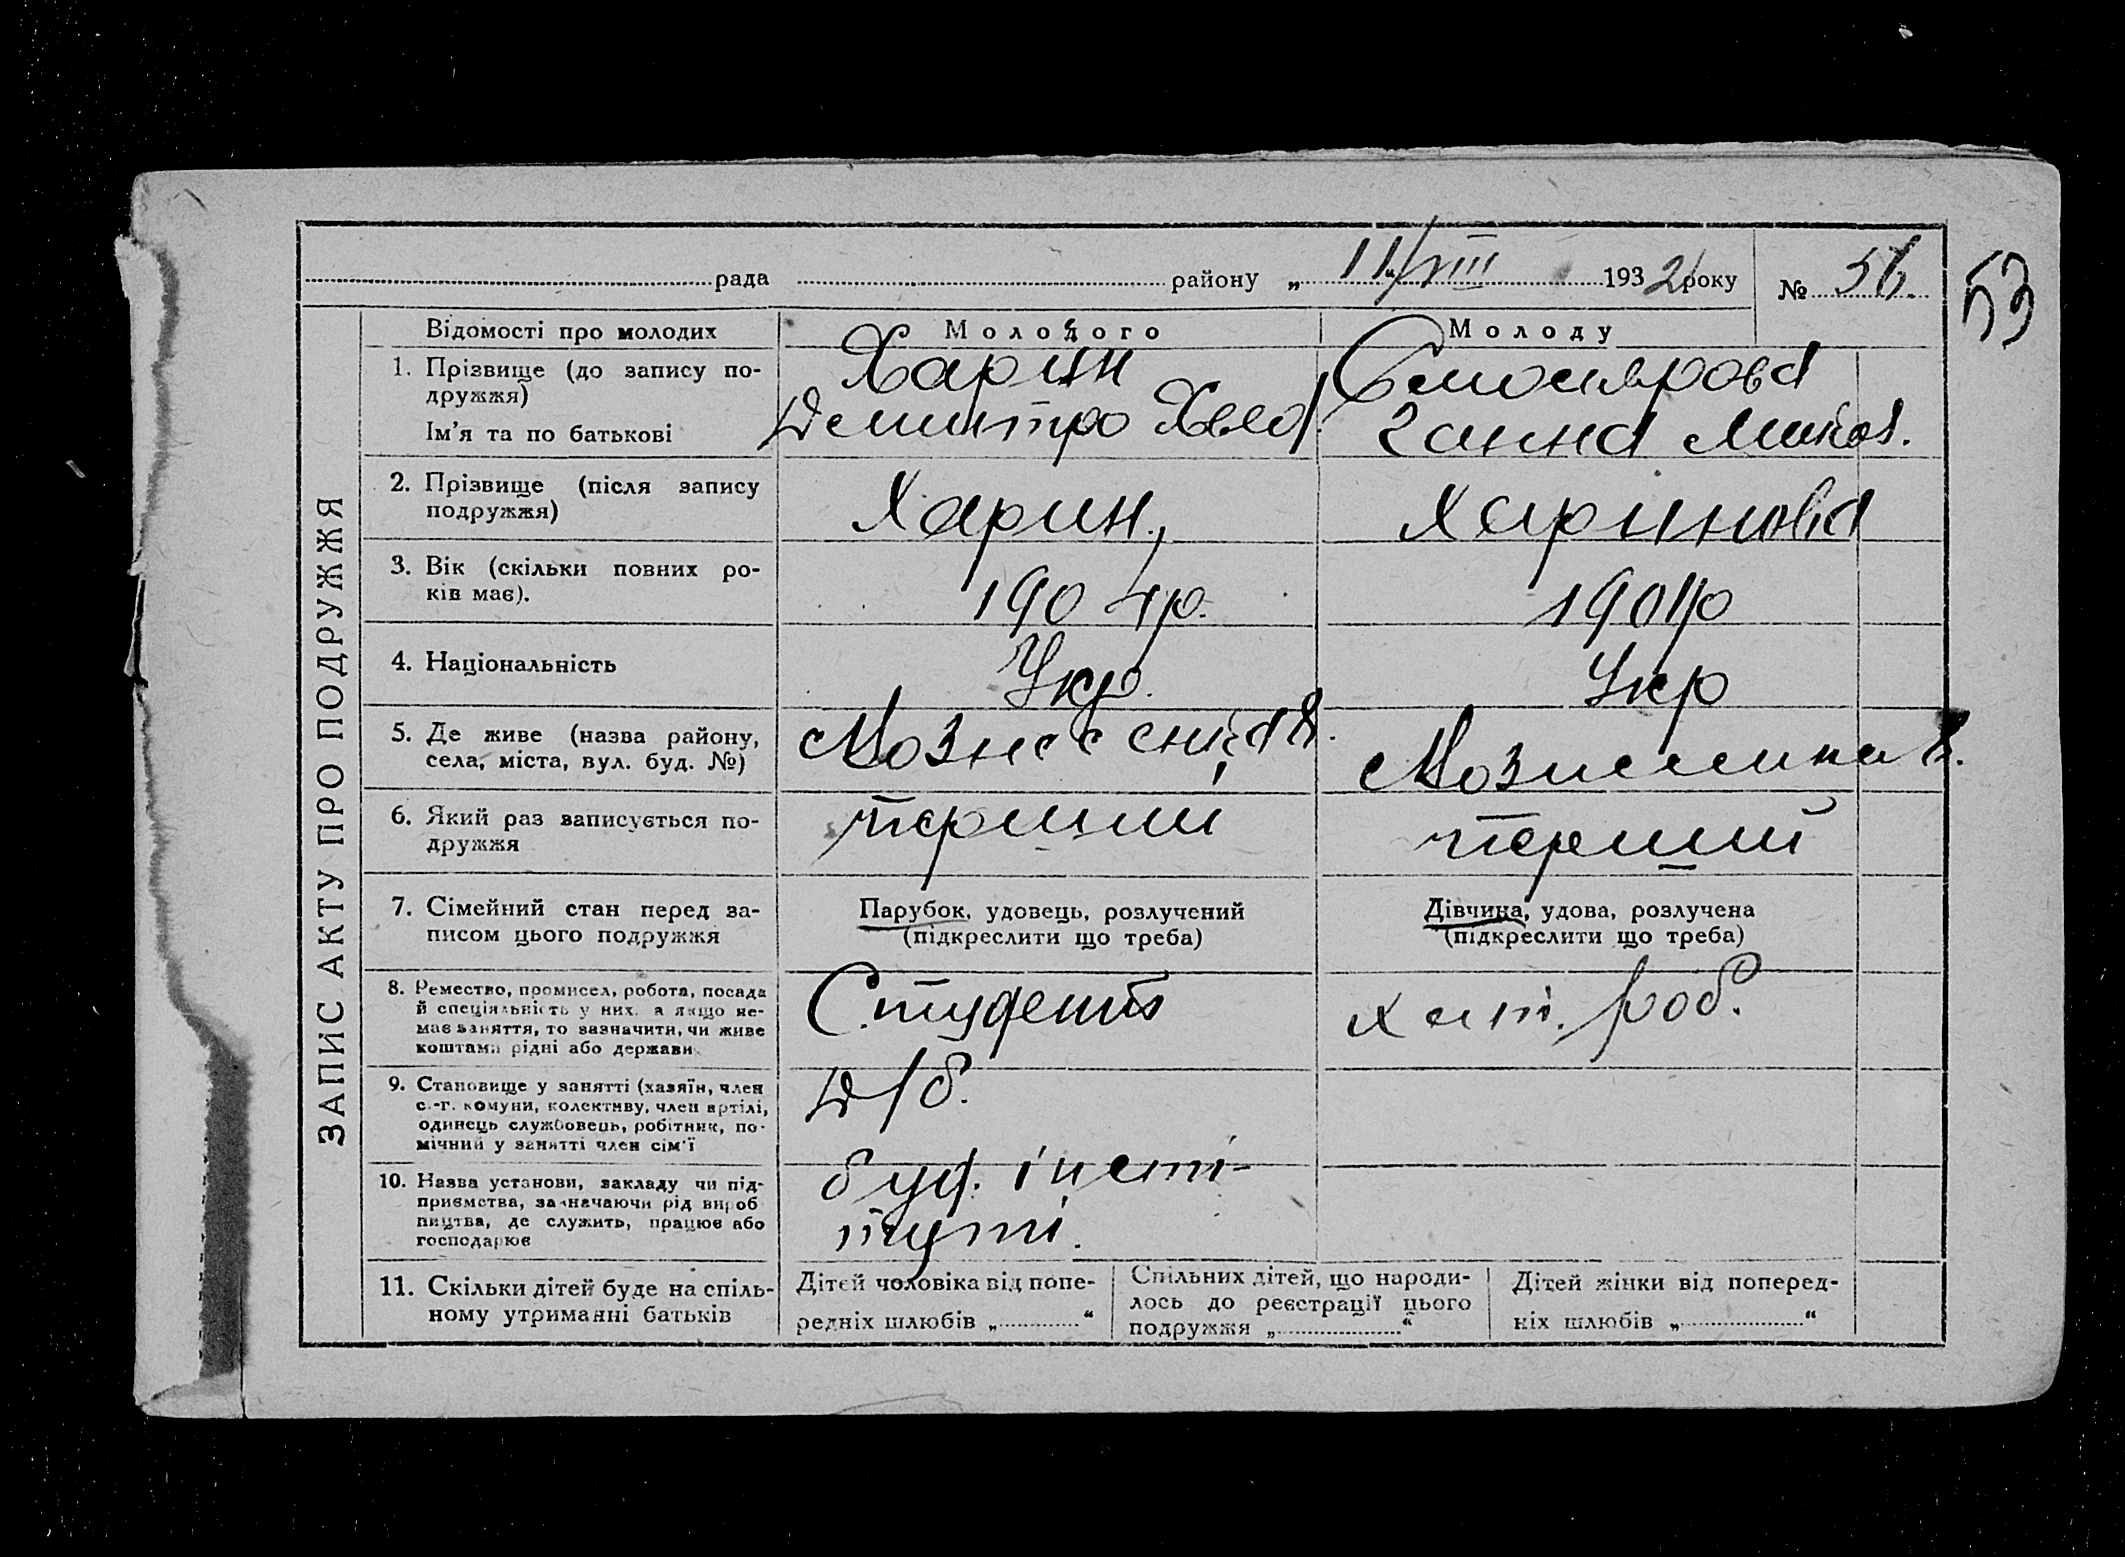 рада району „ 11/VIII 1932 року № 56. 53
ЗАПИС АКТУ ПРО ПОДРУЖЖЯ
Відомості про молодих Молодого Молоду
1. Прізвище (до запису по-
дружжя)
Харин
Ім'я та по батькові
Демитро Хвед.
Ганна Микол.
2. Прізвище (після запису
подружжя)
Харин,
Харинова
3. Вік (скільки повних ро-
ків має).
1904р.
1901р
4. Національність
Укр.
Укр
5. Де живе (назва району,
села, міста, вул. буд. №)
6. Який раз записується по-
дружжя
перший
перший
7. Сімейний стан перед за-
писом цього подружжя
Парубок, удовець, розлучений
(підкреслити що треба)
Дівчина, удова, розлучена
(підкреслити що треба)
8. Ремество, промисел, робота, посада
й спеціяльність у них, а якщо не-
має заняття, то зазначити, чи живе
коштами рідні або держави
Студент
хат. роб.
9. Становище у занятті (хазяїн, член
с.-г. комуни, колективу, член артілі,
одинець службовець, робітник, по-
мічний у занятті член сім'ї
Д/б.
10. Назва установи, закладу чи під-
приємства, зазначаючи рід вироб
ництва, де служить, працює або
господарює
буд. інсті-
туті.
11. Скільки дітей буде на спіль-
ному утриманні батьків
Дітей чоловіка від попе-
редніх шлюбів „ “
Спільних дітей, що народи-
лось до реєстрації цього
подружжя „ “
Дітей жінки від поперед-
ніх шлюбів „ “